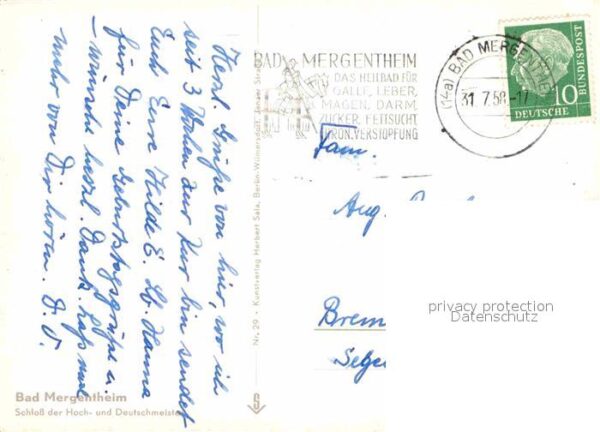 Herzl. Grüße von hier, wo ich
seit 3 Wochen zur Kur bin sendet
Euch Eure Hilde E. Lb. Hanna
für Deine Geburtstagsgrüße u.
– wünsche herzl. Dank. Laß mal
mehr von Dir hören. D. O.
Bad Mergentheim
Schloß der Hoch- und Deutschmeister
Nr. 29 • Kunstverlag Herbert Sala, Berlin-Wilmersdorf,
BAD MERGENTHEIM
DAS HEILBAD FÜR
GALLE, LEBER,
MAGEN, DARM,
ZUCKER, FETTSUCHT,
CHRON. VERSTOPFUNG
(14a) BAD MERGENTHEIM
31.7.58-17
10
DEUTSCHE
BUNDESPOST
Fam.
Aug.
Brem
privacy protection
Datenschutz